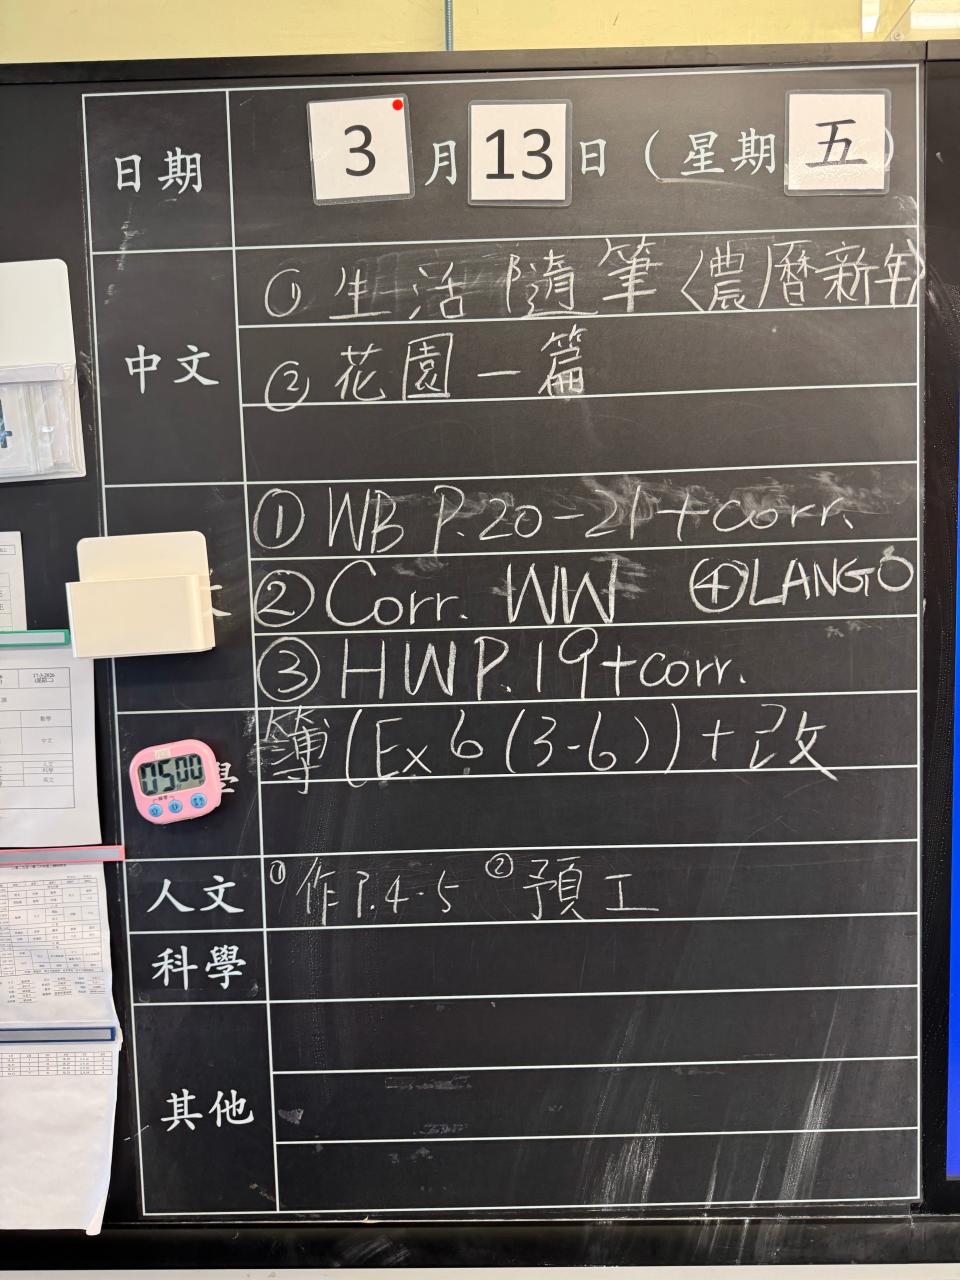 日期 3月13日(星期五)
中文
① 生活隨筆〈農曆新年〉
② 花園一篇
① WB P.20-21+corr.
② Corr. WW ④ LANGO
③ HW P.19+corr.
簿(Ex 6 (3-6))+改
05 00
學
人文 ① 作P.4-5 ② 預工
科學
其他